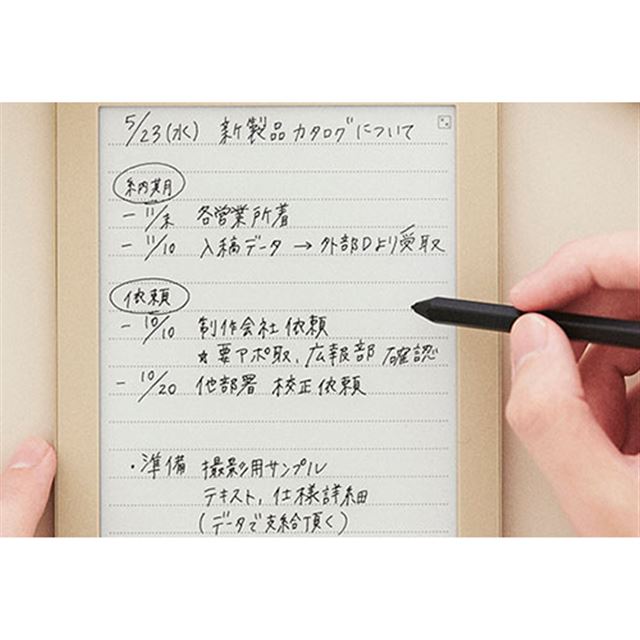 5/23(水) 新製品カタログについて
納期
- 11/末 各営業所着
- 11/10 入稿データ → 外部Dより受取
依頼
- 10/10 制作会社依頼
★要アポ取、広報部 確認
- 10/20 他部署 校正依頼
・準備 撮影用サンプル
テキスト、仕様詳細
(データで支給頂く)